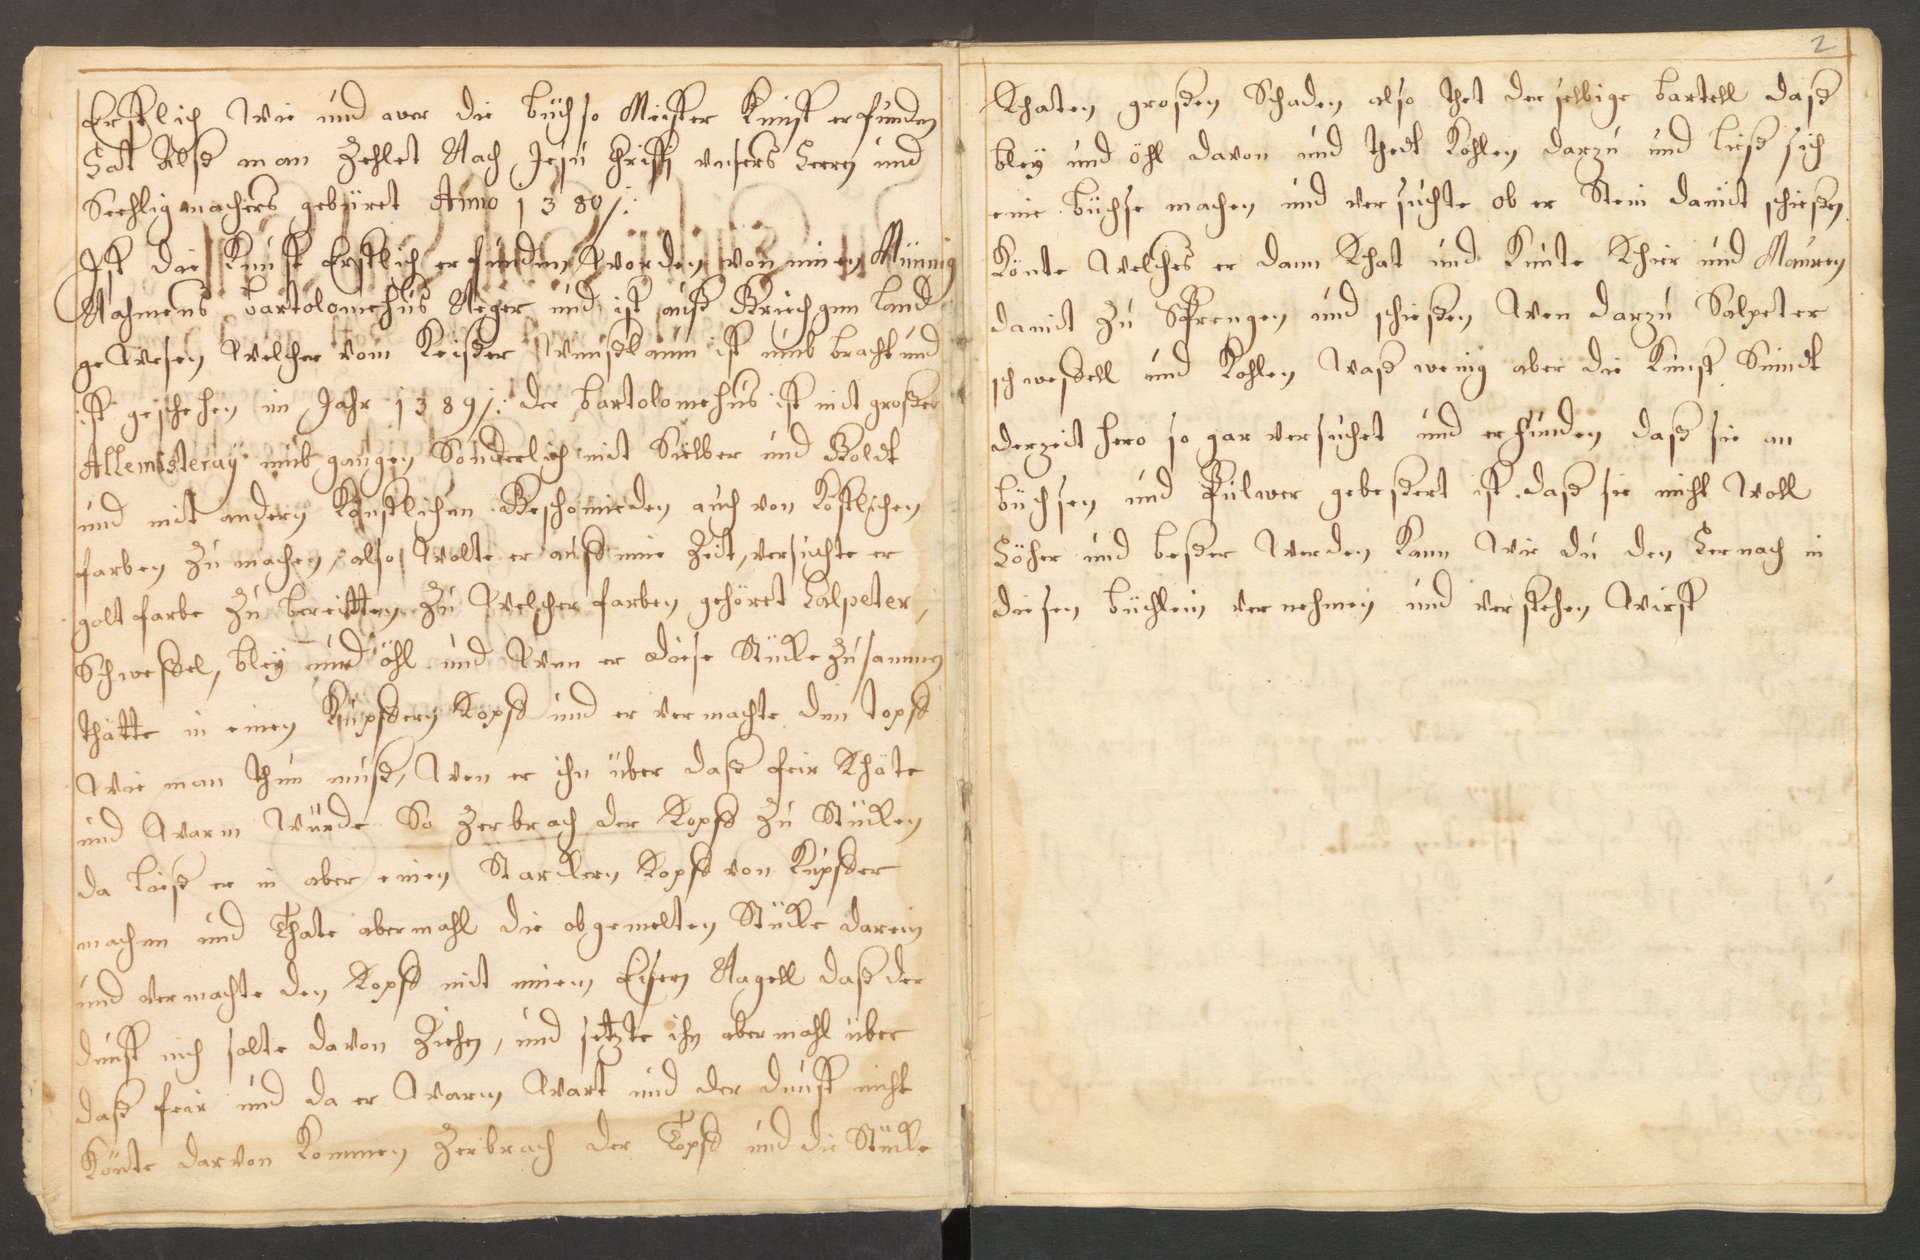 2
Erstlich Wie und aver die büchse Meister Kunst erfunden
Hatt Alß man Zehlet Nach Jesu Christy unsers Herrn und
Seehligmachers gebüret Anno 1380/:
Ist die Kunst Erstlich erfunden worden von einen Münnig
Nahmens Bartolomehus Neger und ist auß Griechgen land
gewesen Welcher vom Keißer Winußlaum ist umb bracht und
ist geschehen im Jahr 1389/: der bartolomehus ist mit großer
Allemisteraÿ umb gangen Sonderlich mit Sielber und Goldt
und mit andern Künstlichen Geschmieden auch von Köstlichen
farben Zu machen, also Wolte er auff eine Zeit, versuchte er
golt farbe Zu bereitten, Zu Welcher farben gehöret Salpeter,
Schweffel, bleÿ und öhl und Wen er diese Stücke Zusammen
thätte in einen Kupffern Kopff und er vermachte den topff
Wie man thun muß, Wen er ihn über daß feir thäte
und Warm Würde So Zerbrach der Kopff Zu Stücken
da ließ er in aber einen Starckern Kopff von Kupffer
machen und Thate abermahl die obgemelten Stücke darein
und vermachte den Kopff mit einen Eisern Nagell daß der
dunst nich solte davon Ziehen, und setzte ihn abermahl über
daß feir und da er Warm Wart und der dunst nicht
Könte darvon Kommen Zerbrach der Topff und die Stücke
thaten großen Schaden, also thet der selbige bartell daß
bleÿ und öhl davon und thedt Kohlen darzu und ließ sich
eine büchse machen und versuchte ob er Stein damit schießen
Könte Welches er dann that und Kunte thier und Mauren
damit Zu Sprengen und schießen Wen darzu Salpeter
schweffell und Kohlen, Waß wenig aber die Kunst Sindt
derzeit hero so gar versuchet und erfunden daß sie an
büchsen und Pulwer gebeßert ist daß sie nicht Woll
Höher und beßer Werden Kann Wie du den Hernach in
diesen büchlein vernehmen und verstehen Wirst